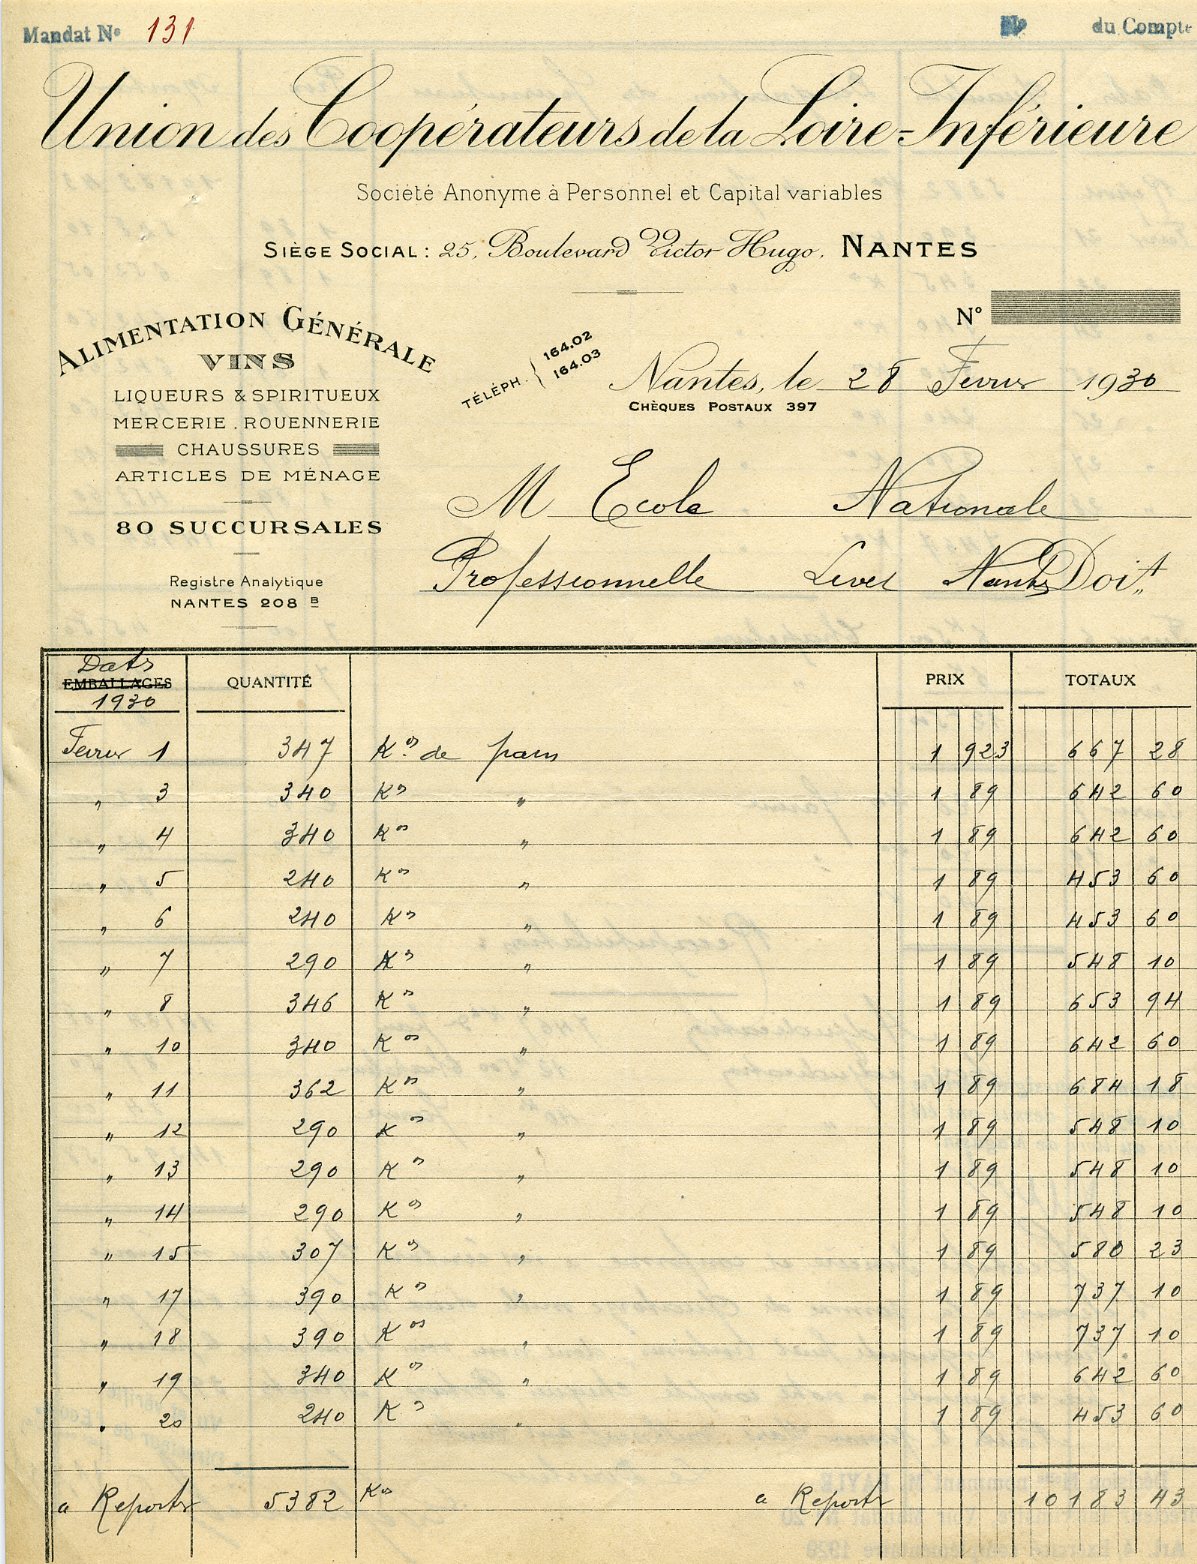 Mandat Nº 131 Nº du Compte
Union des Coopérateurs de la Loire-Inférieure
Société Anonyme à Personnel et Capital variables
SIÈGE SOCIAL : 25, Boulevard Victor Hugo, NANTES
Nº
ALIMENTATION GÉNÉRALE
VINS
LIQUEURS & SPIRITUEUX
MERCERIE . ROUENNERIE
CHAUSSURES
ARTICLES DE MÉNAGE
80 SUCCURSALES
Registre Analytique
NANTES 208 B
TÉLÉPH. { 164.02
164.03
Nantes, le 28 Fevrier 1930
CHÈQUES POSTAUX 397
M Ecole Nationale
Professionnelle Livet Nantes Doit
Date
EMBALLAGES QUANTITÉ PRIX TOTAUX
1930
Fevrier 1 347 Kos de pain 1 923 667 28
" 3 340 Kos " 1 89 642 60
" 4 340 Kos " 1 89 642 60
" 5 240 Kos " 1 89 453 60
" 6 240 Kos " 1 89 453 60
" 7 290 Kos " 1 89 548 10
" 8 346 Kos " 1 89 653 94
" 10 340 Kos " 1 89 642 60
" 11 362 Kos " 1 89 684 18
" 12 290 Kos " 1 89 548 10
" 13 290 Kos " 1 89 548 10
" 14 290 Kos " 1 89 548 10
" 15 307 Kos " 1 89 580 23
" 17 390 Kos " 1 89 737 10
" 18 390 Kos " 1 89 737 10
" 19 340 Kos " 1 89 642 60
" 20 240 Kos " 1 89 453 60
a Reporter 5382 Kos a Reporter 10183 43